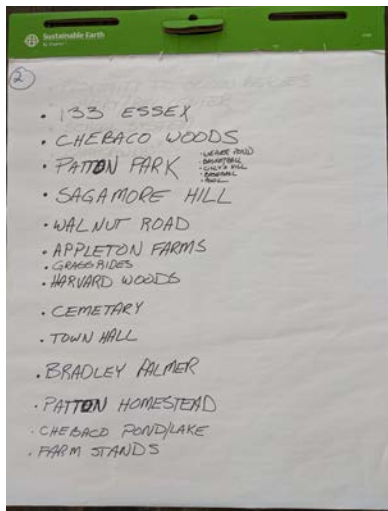 Sustainable Earth
2
• 133 ESSEX
• CHEBACO WOODS
• PATTON PARK
• WEAVER POND
• BASKETBALL
HILL
• BASEBALL
• POOL
• SAGAMORE HILL
• WALNUT ROAD
• APPLETON FARMS
• GRASS RIDES
• HARVARD WOODS
• CEMETARY
• TOWN HALL
• BRADLEY PALMER
• PATTON HOMESTEAD
• CHEBACO POND/LAKE
• FARM STANDS